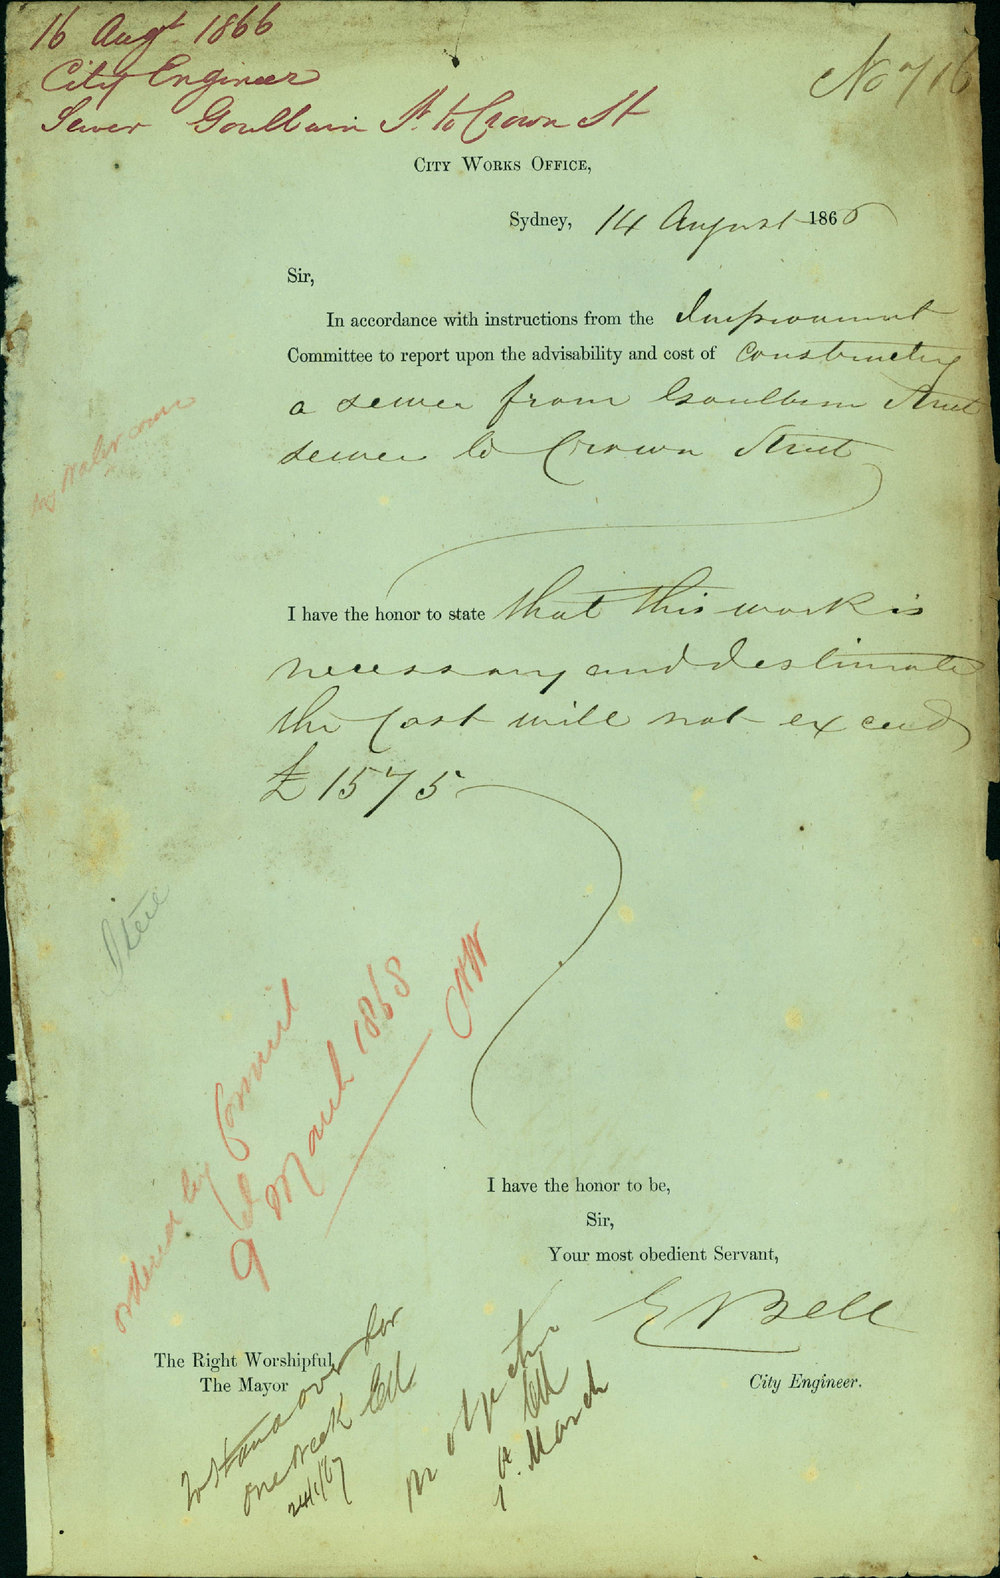 16 Augt 1866
City Engineer
Sewer Goulburn St. to Crown St
No 716
CITY WORKS OFFICE,
Sydney, 14 August 1866
Sir,
In accordance with instructions from the Improvement
Committee to report upon the advisability and cost of constructing
a sewer from Goulburn Street
sewer to Crown Street
by Water course
I have the honor to state that this work is
necessary and I estimate
the cost will not exceed
£1575
ordered by Council
9th March 1868
I have the honor to be,
Sir,
Your most obedient Servant,
E Bell
City Engineer.
The Right Worshipful
The Mayor
To stand over for
one week
24/1/67
no objection
1st. March